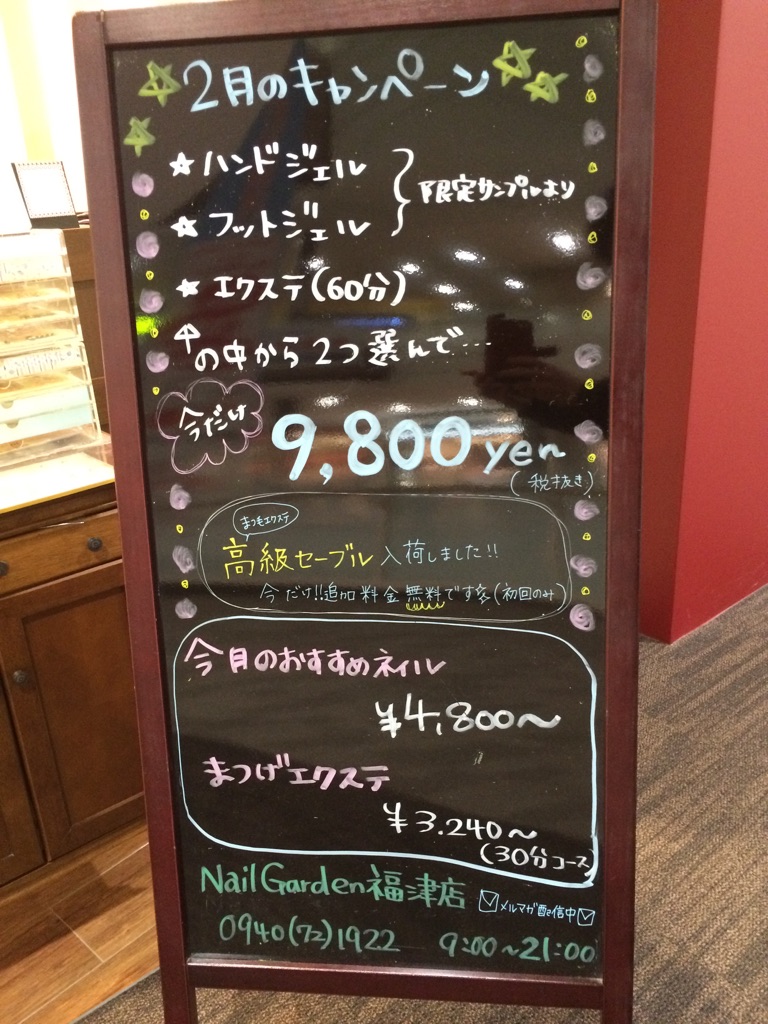 2月のキャンペーン
☆ ハンドジェル
☆ フットジェル
限定サンプルより
☆ エクステ(60分)
↑の中から2つ選んで…
今だけ
9,800yen
(税抜き)
まつ毛エクステ
高級セーブル入荷しました!!
今だけ!!追加料金無料です☆(初回のみ)
今月のおすすめネイル
¥4,800〜
まつげエクステ
¥3.240〜
(30分コース)
Nail Garden福津店
メルマガ配信中
0940(72)1922 9:00~21:00